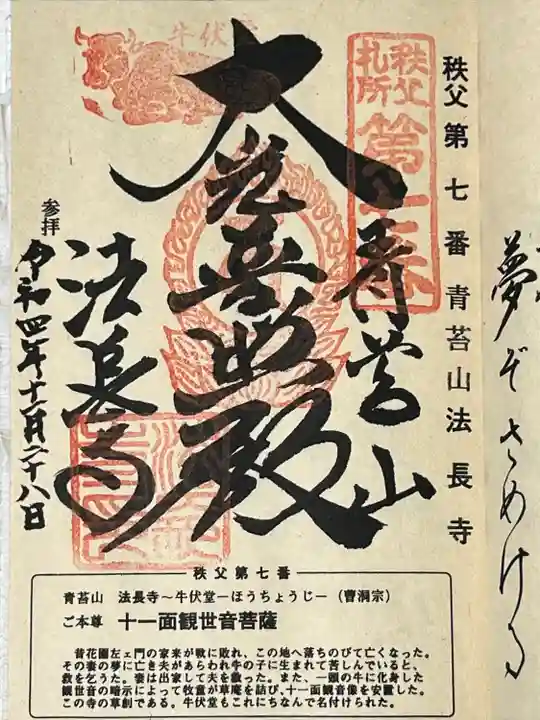 秩父第七番青苔山法長寺
秩父
札所
第七番
牛伏堂
青苔山
大光普照殿
法長寺
参拝
令和四年十一月二十八日
夢ぞさめける
秩父第七番
青苔山 法長寺〜牛伏堂ーほうちょうじー(曹洞宗)
ご本尊 十一面観世音菩薩
昔花園左ェ門の家来が戦に敗れ、この地へ落ちのびて亡くなった。
その妻の夢に亡き夫があらわれ牛の子に生まれて苦しんでいると、
救を乞うた。妻は出家して夫を救った。また、一頭の牛に化身した
観世音の暗示によって牧童が草庵を詰び、十一面観音像を安置した。
この寺の草創である。牛伏堂もこれにちなんで名付けられた。